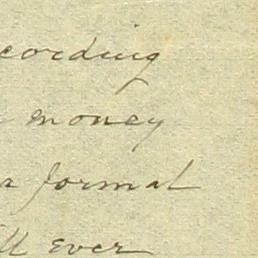 cording
money
a formal
ll ever